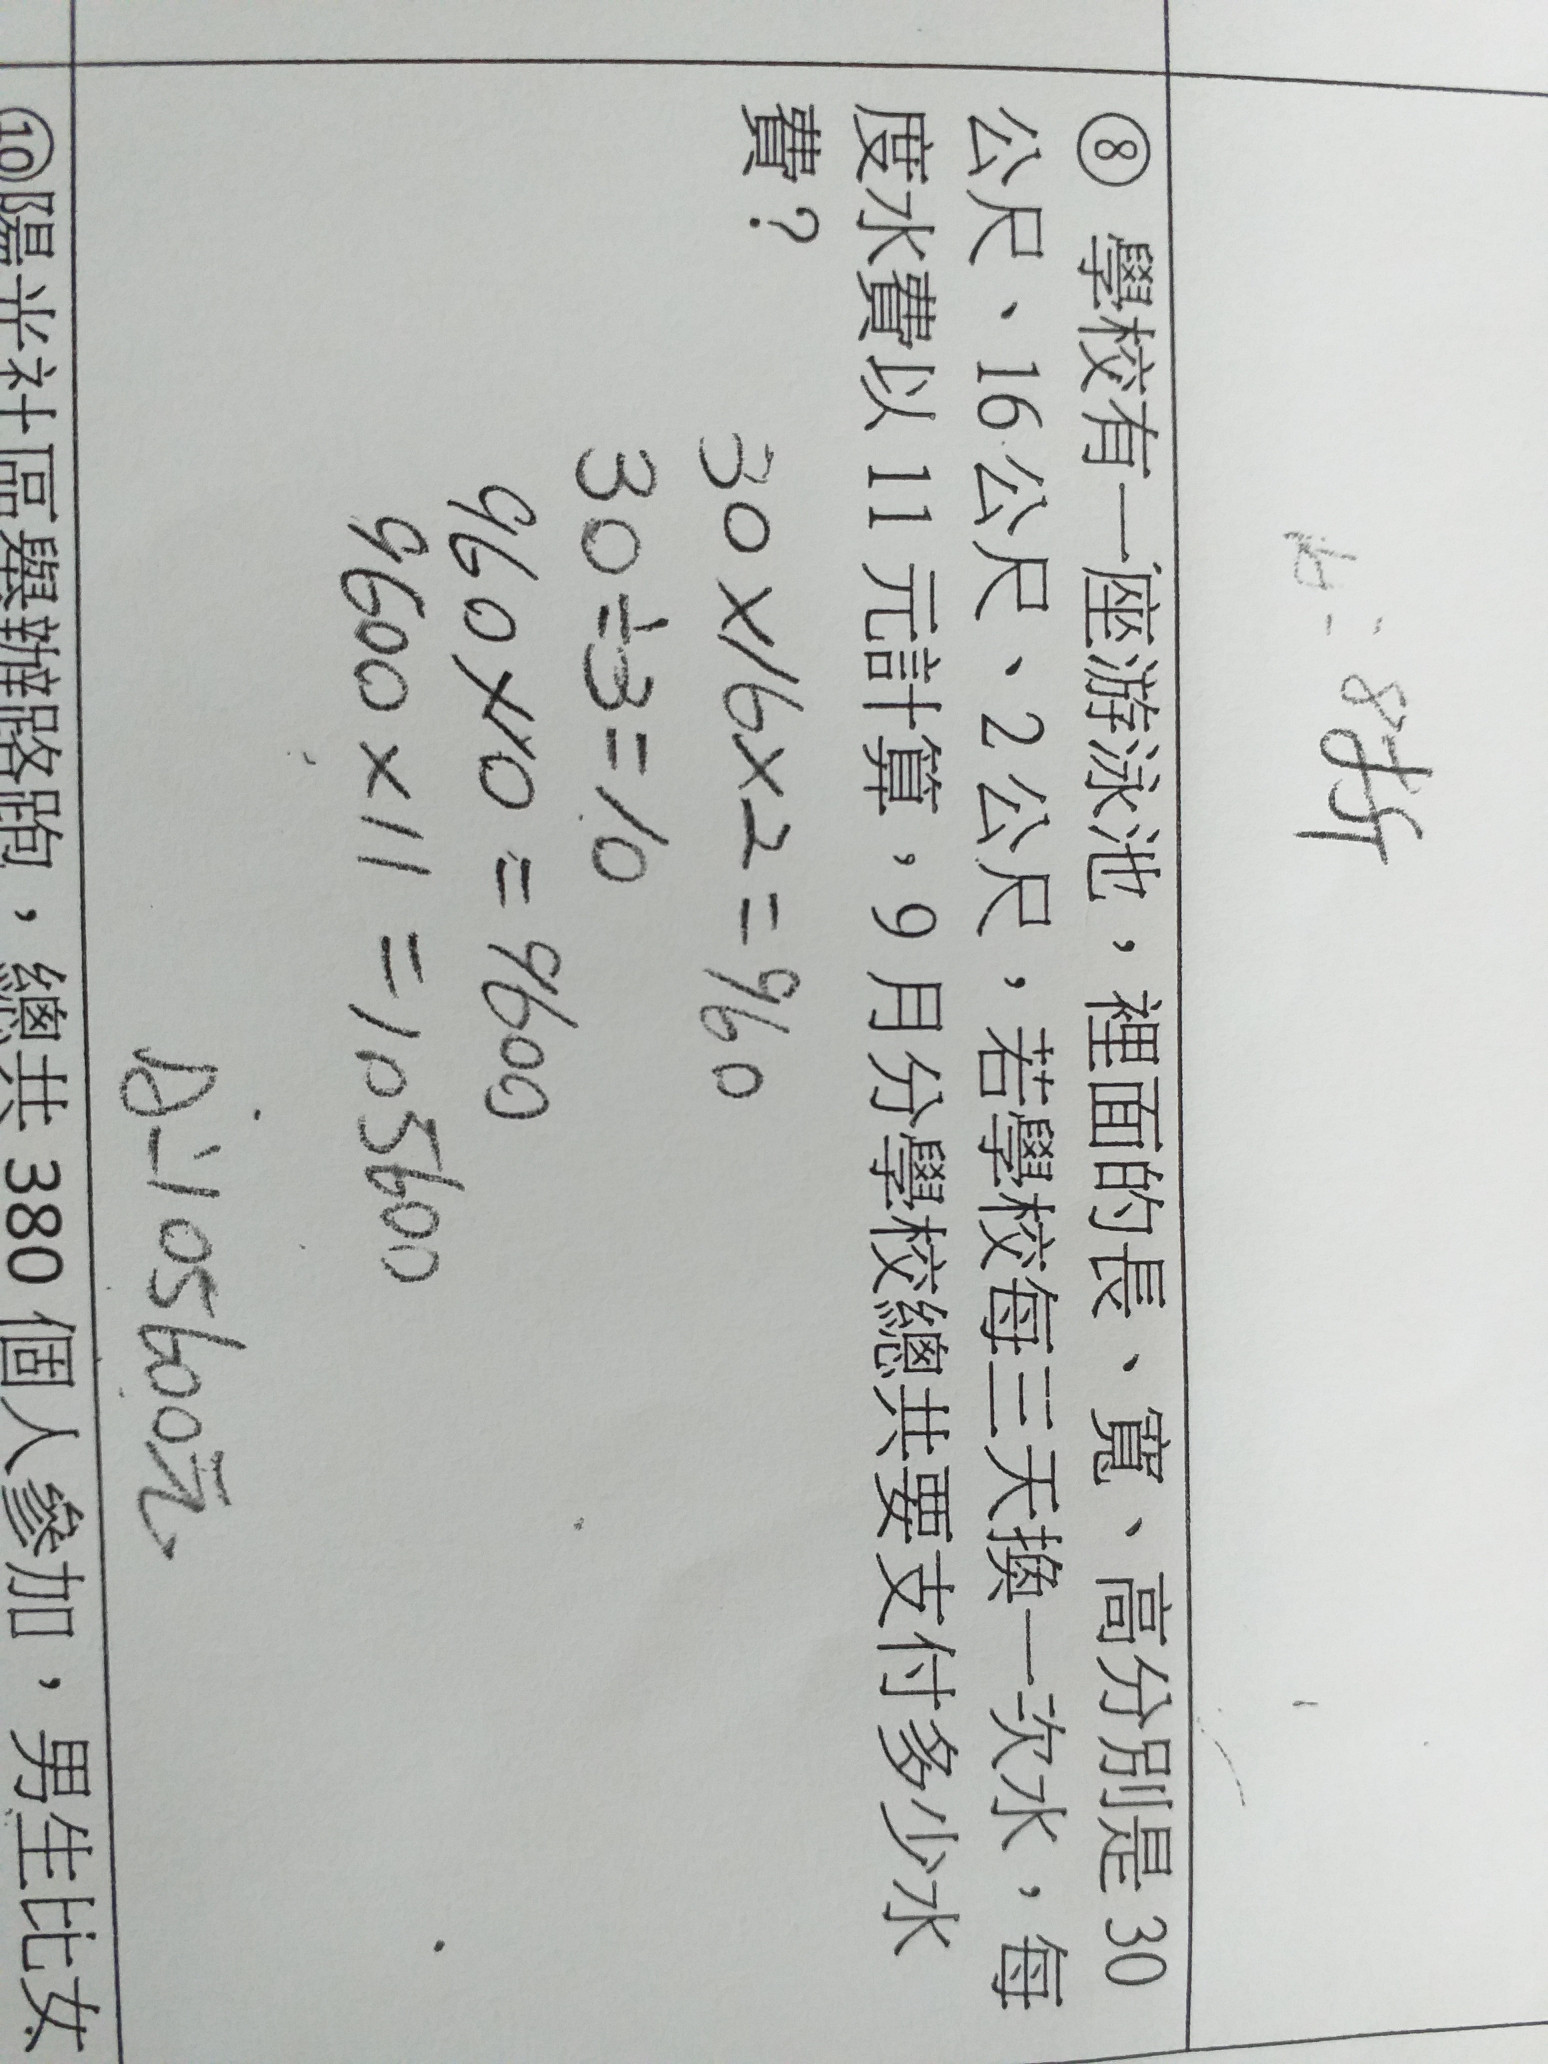 8折
⑧ 學校有一座游泳池，裡面的長、寬、高分別是 30
公尺、16 公尺、2 公尺，若學校每三天換一次水，每
度水費以 11 元計算，9 月分學校總共要支付多少水
費？
30×16×2=960
30÷3=10
960×10=9600
9600×11=105600
A:105600元
⑩陽光社區舉辦路跑，總共 380 個人參加，男生比女